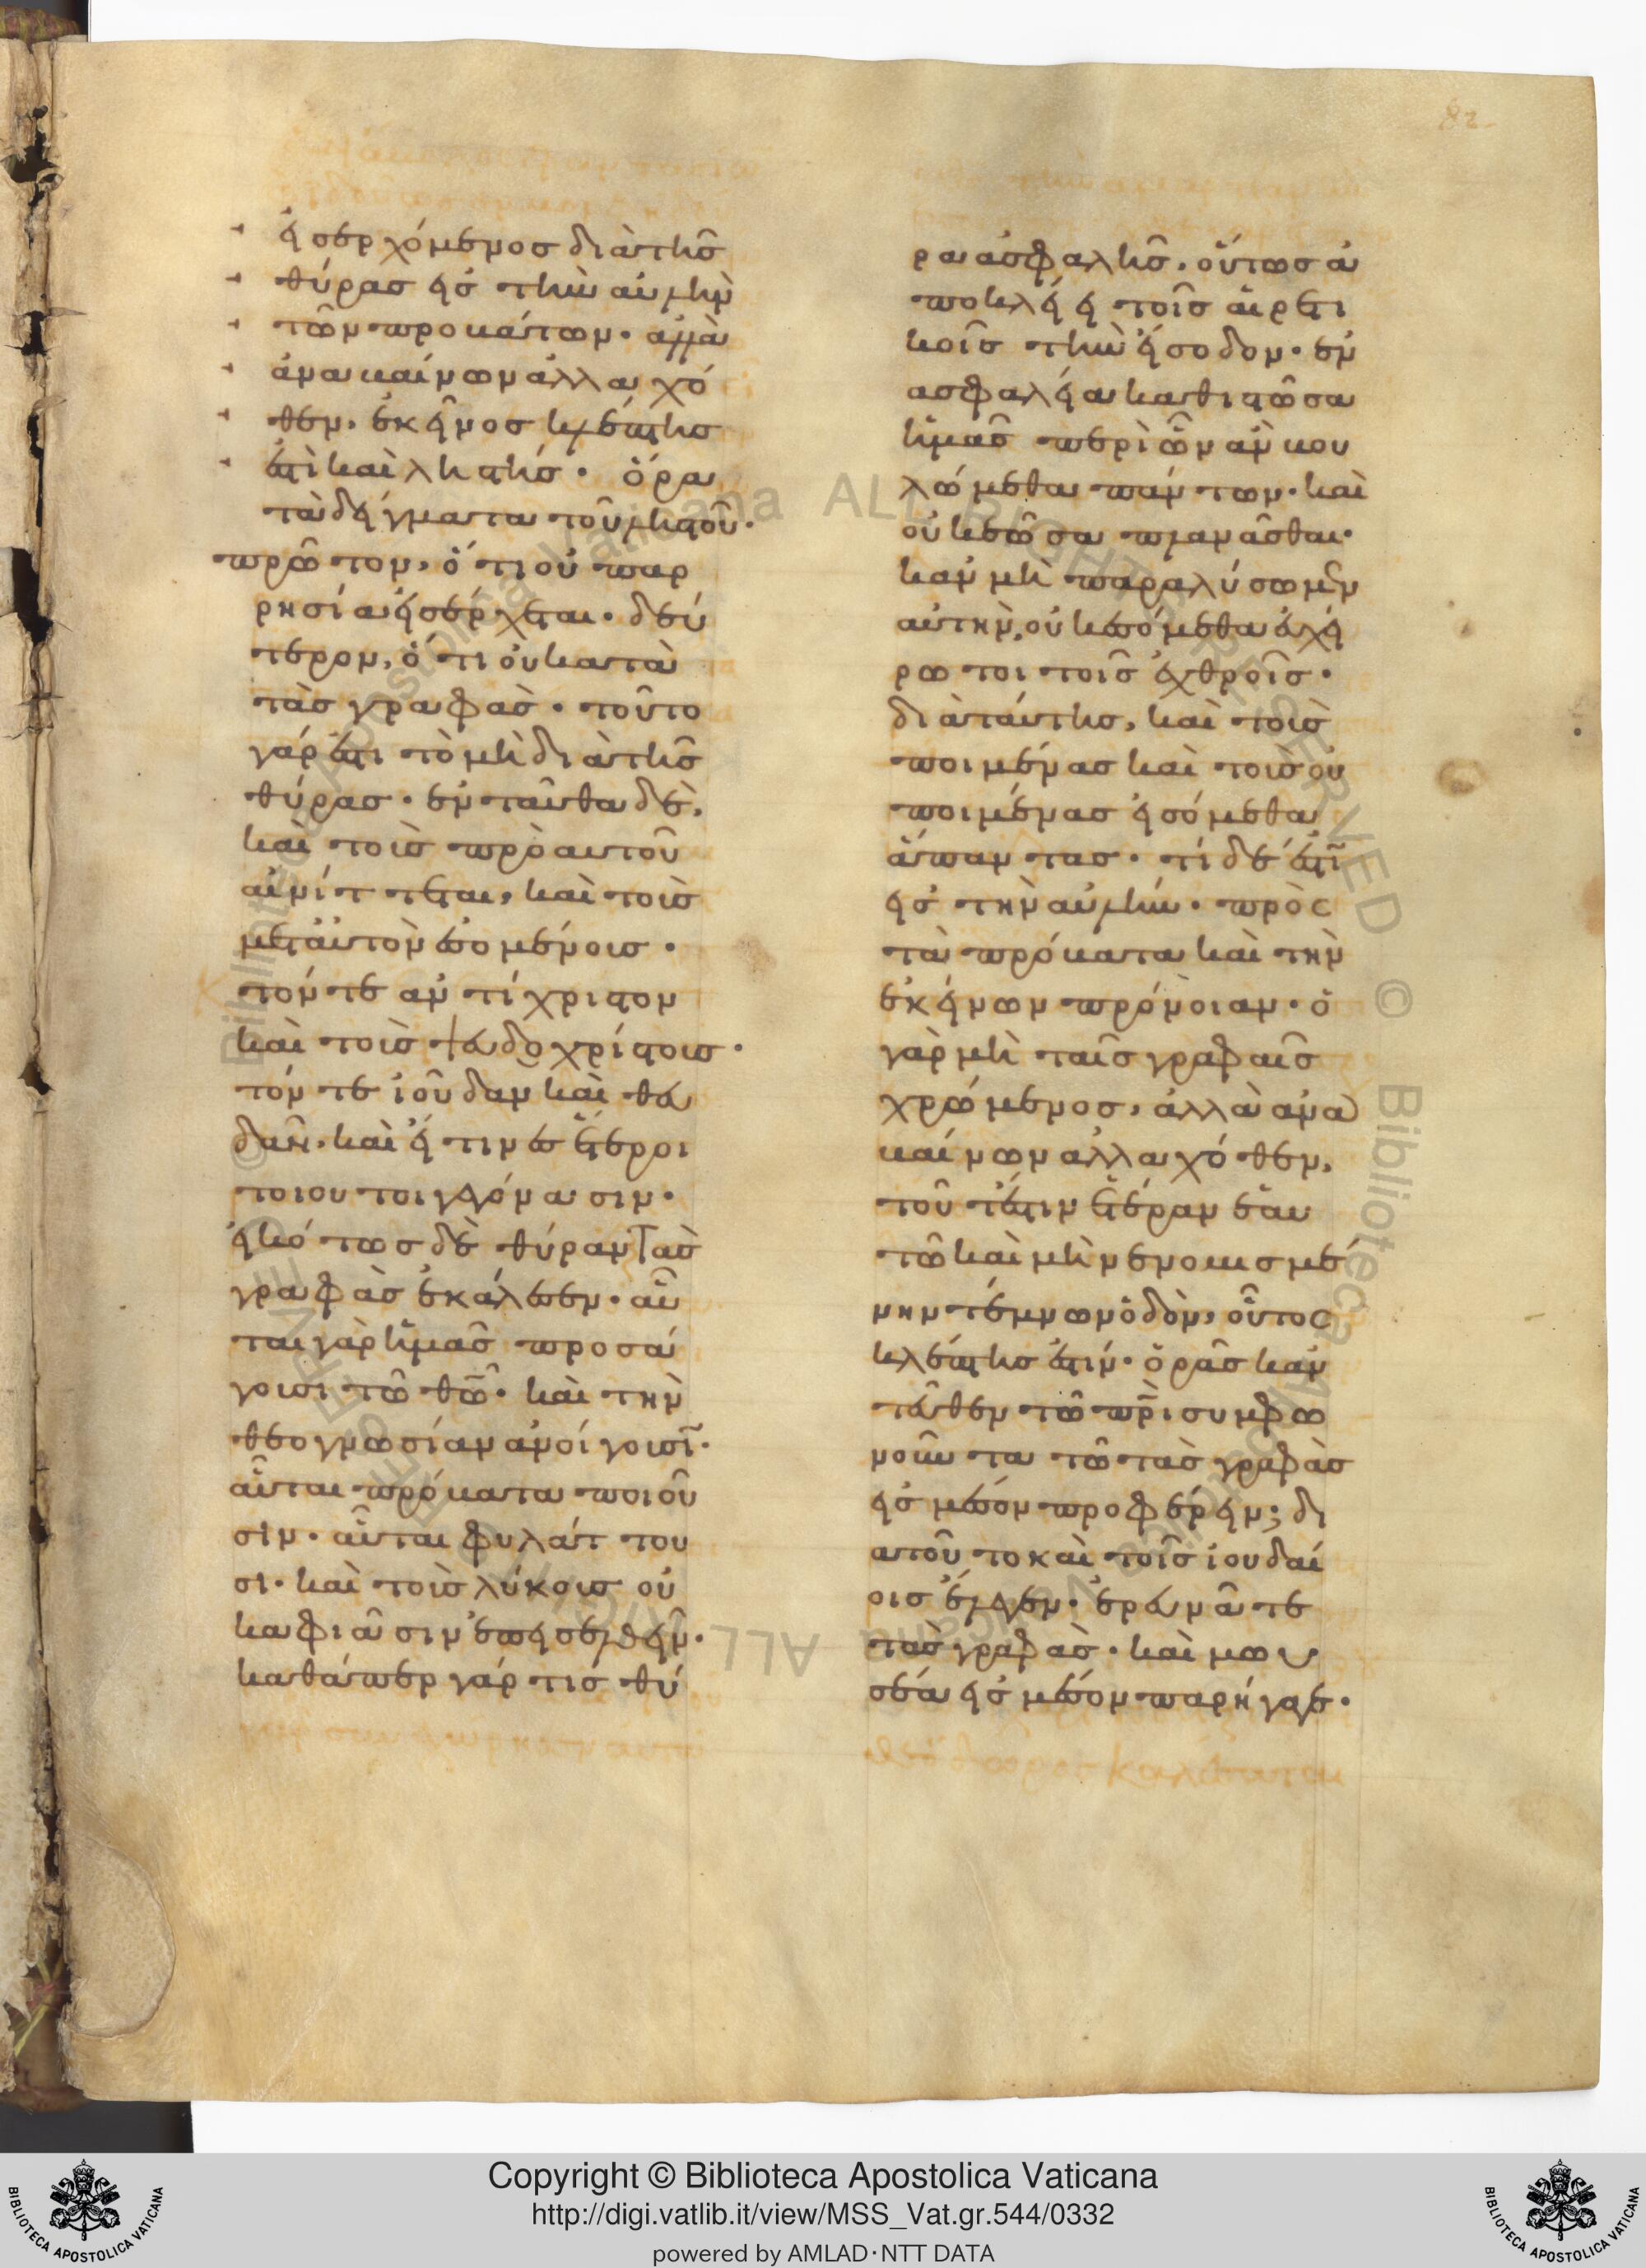 82
εἰσερχόμενος διὰ τῆς
θύρας εἰς τὴν αὐλὴν
τῶν προβάτων· ἀλλὰ
ἀναβαίνων ἀλλαχό
θεν, ἐκεῖνος κλέπτης
ἐστὶ καὶ ληστής· ὅρα
τὰ δείγματα τοῦ ληστοῦ·
πρῶτον, ὅτι οὐ παρ
ρησία εἰσέρχεται· δεύ
τερον, ὅτι οὐ κατὰ
τὰς γραφάς· τοῦτο
γάρ ἐστι τὸ μὴ διὰ τῆς
θύρας· ἐνταῦθα δὲ,
καὶ τοὺς πρὸ αὐτοῦ
αἰνίττεται, καὶ τοὺς
μετ' αὐτὸν ἐσομένους·
τόν τε ἀντίχριστον
καὶ τοὺς ψευδοχρίστους·
τόν τε ἰούδαν καὶ θευ
δᾶν· καὶ εἴ τινες ἕτεροι
τοιοῦτοι γεγόνασιν·
εἰκότως δὲ θύραν τὰς
γραφὰς ἐκάλεσεν· αὗ
ται γὰρ ἡμᾶς προσά
γουσι τῶ θῶ· καὶ τὴν
θεογνωσίαν ἀνοίγουσι·
αὗται πρόβατα ποιοῦ
σιν· αὗται φυλάττου
σι· καὶ τοὺς λύκους οὐ
κ ἀφιᾶσιν ἐπεισελθεῖν·
καθάπερ γάρ τις θύ
ρα ἀσφαλὴς, οὕτως ἀ
ποκλείει τοῖς αἱρετι
κοῖς τὴν εἴσοδον· ἐν
ασφαλεία καθιστῶσα
ἡμᾶς περὶ ὧν ἂν βου
λώμεθα πάντων· καὶ
οὐκ ἐῶσα πλανᾶσθαι·
κἂν μὴ παραλύσωμεν
αὐτὴν, οὐκ ἐσόμεθα εὐχεί
ρωτοι τοῖς ἐχθροῖς·
διὰ ταύτης, καὶ τοὺς
ποιμένας καὶ τοὺς οὐ
ποιμένας εἰσόμεθα
ἅπαντας· τί δέ ἐστιν
εἰς τὴν αὐλήν· πρὸς
τὰ πρόβατα καὶ τὴν
ἐκείνων πρόνοιαν· ὁ
γὰρ μὴ ταῖς γραφαῖς
χρώμενος, ἀλλὰ ἀνα
βαίνων ἀλλαχόθεν,
τοῦτ' ἔστιν ἑτέραν ἑαυ
τῶ καὶ μὴ νενομισμέ
νην τέμνων ὁδὸν, οὗτος
κλέπτης ἐστίν· ὁρᾶς κἀν
τεῦθεν τῶ πρὶ συμφω
νοῦντα τῶ τὰς γραφὰς
εἰς μέσον προφέρειν; δι
α τοῦτο καὶ τοῖς ἰουδαί
οις ἔλεγεν· ἐρευνᾶτε
τὰς γραφάς· καὶ μωυ
σέα εἰς μέσον παρήγαγε·
Copyright © Biblioteca Apostolica Vaticana
http://digi.vatlib.it/view/MSS_Vat.gr.544/0332
powered by AMLAD·NTT DATA
BIBLIOTECA APOSTOLICA VATICANA
BIBLIOTECA APOSTOLICA VATICANA